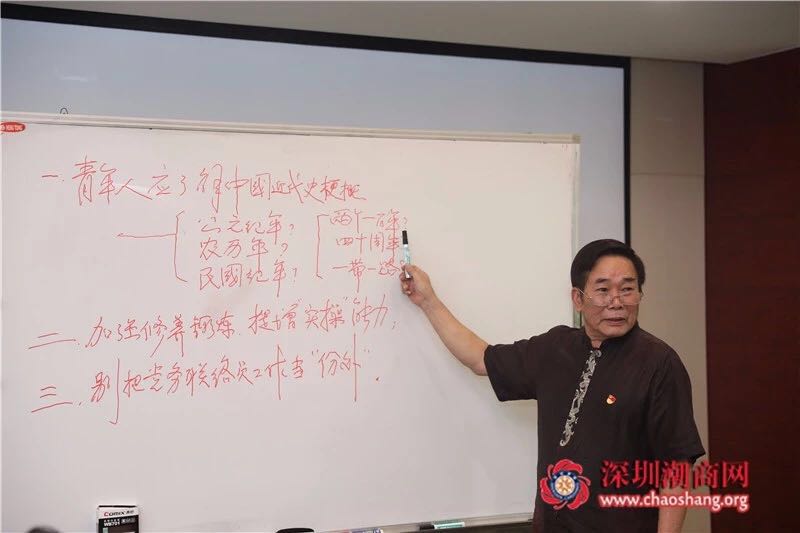 一.青年人应了解中國近代史梗概
公元纪年?
农历年?
民國纪年?
两个一百年?
四十周年
一带一路
二.加强修养锻炼.提增"实操"能力;
三.别把党务联络员工作当"份外".
Comix
WB701
深圳潮商网
www.chaoshang.org